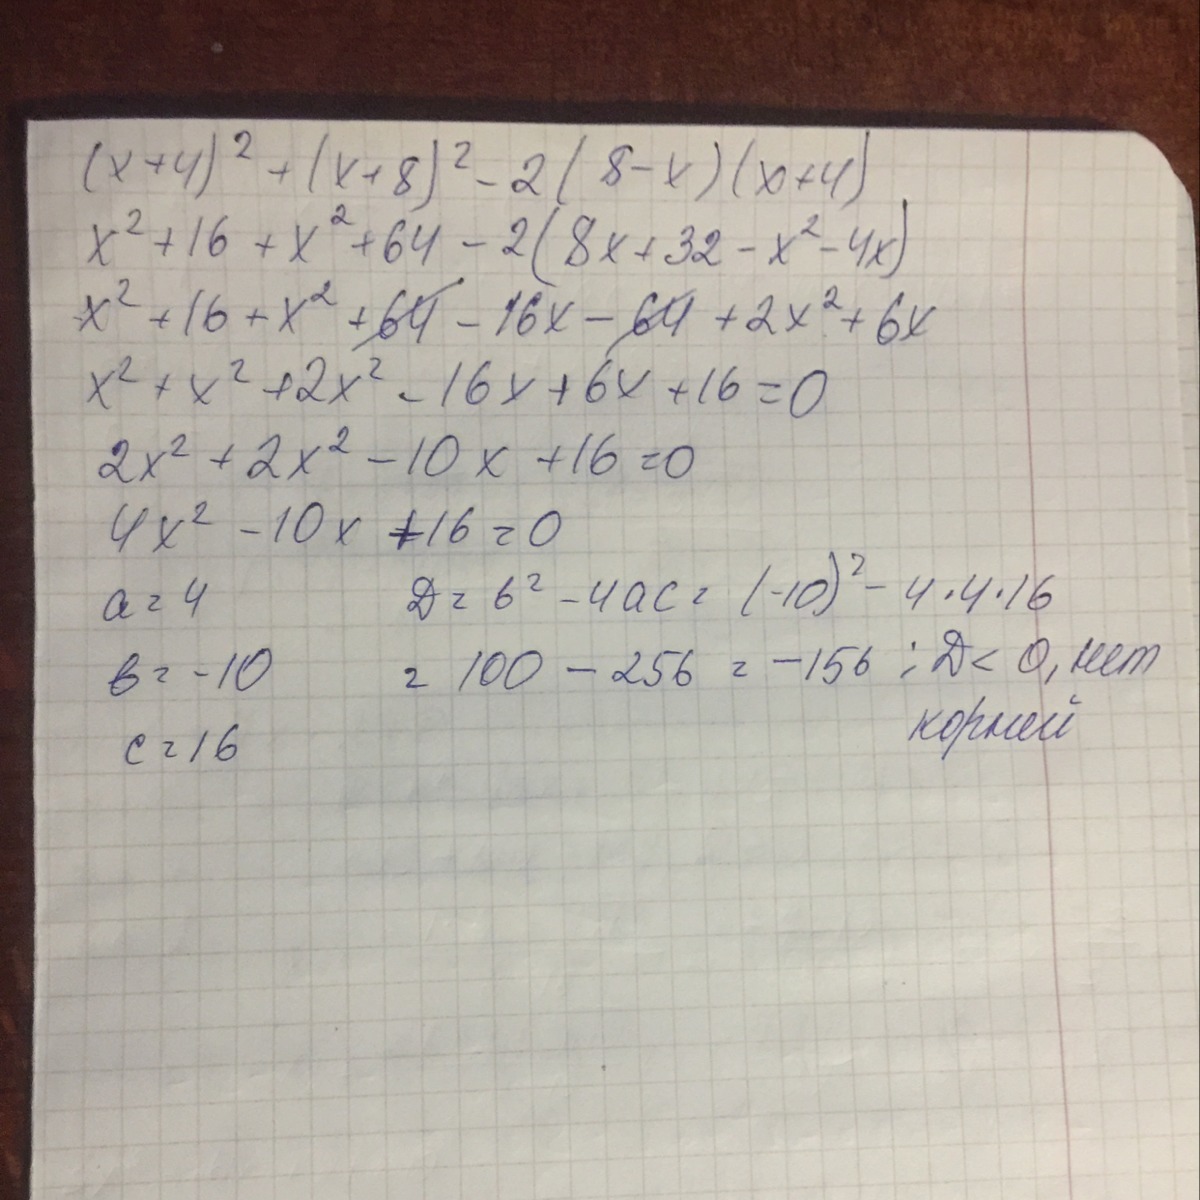 (x+4)² + (x+8)² - 2(8-x)(x+4)
x² + 16 + x² + 64 - 2(8x + 32 - x² - 4x)
x² + 16 + x² + 64 - 16x - 64 + 2x² + 6x
x² + x² + 2x² - 16x + 6x + 16 = 0
2x² + 2x² - 10x + 16 = 0
4x² - 10x + 16 = 0
a = 4 D = b² - 4ac = (-10)² - 4·4·16
b = -10 = 100 - 256 = -156 ; D < 0, нет
корней
c = 16